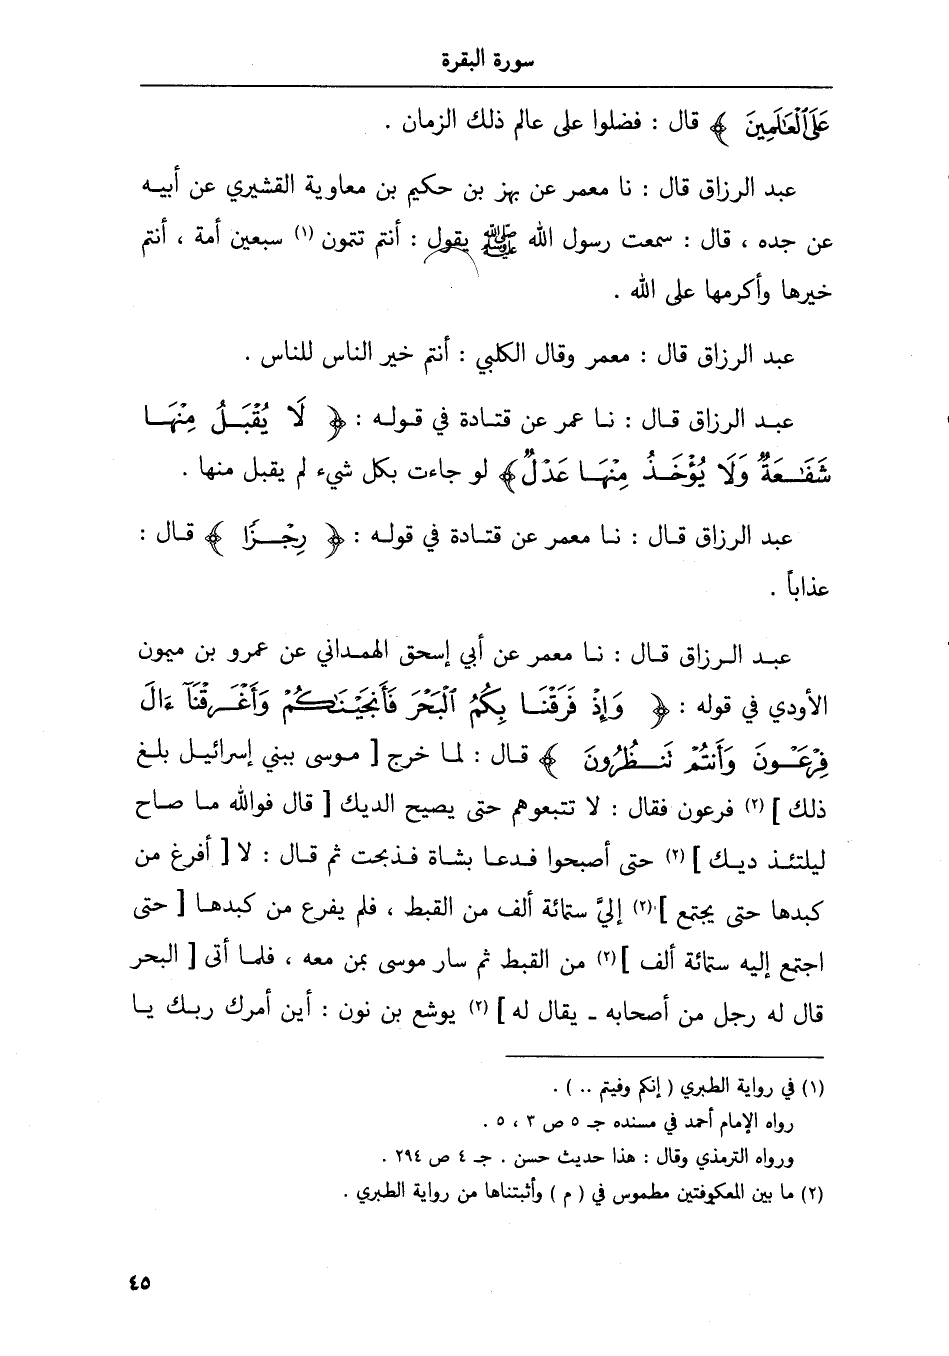 سورة البقرة
عَلَى ٱلْعَـٰلَمِينَ ﴾ قال : فضلوا على عالم ذلك الزمان .
عبد الرزاق قال : نا معمر عن بهز بن حكيم بن معاوية القشيري عن أبيه
عن جده ، قال : سمعت رسول الله ﷺ يقول : أنتم تتمون (١) سبعين أمة ، أنتم
خيرها وأكرمها على الله .
عبد الرزاق قال : معمر وقال الكلبي : أنتم خير الناس للناس .
عبد الرزاق قال : نا عمر عن قتادة في قوله : ﴿ لَا يُقْبَلُ مِنْهَا
شَفَـٰعَةٌ وَلَا يُؤْخَذُ مِنْهَا عَدْلٌ ﴾ لو جاءت بكل شيء لم يقبل منها .
عبد الرزاق قال : نا معمر عن قتادة في قوله : ﴿ رِجْزًا ﴾ قال :
عذاباً .
عبد الرزاق قال : نا معمر عن أبي إسحق الهمداني عن عمرو بن ميمون
الأودي في قوله : ﴿ وَإِذْ فَرَقْنَا بِكُمُ ٱلْبَحْرَ فَأَنجَيْنَـٰكُمْ وَأَغْرَقْنَآ ءَالَ
فِرْعَوْنَ وَأَنتُمْ تَنظُرُونَ ﴾ قال : لما خرج [ موسى ببني إسرائيل بلغ
ذلك ] (٢) فرعون فقال : لا تتبعوهم حتى يصيح الديك [ قال فوالله ما صاح
ليلتئذ ديك ] (٢) حتى أصبحوا فدعا بشاة فذبحت ثم قال : لا [ أفرغ من
كبدها حتى يجتمع ] (٢) إليَّ ستمائة ألف من القبط ، فلم يفرع من كبدها [ حتى
اجتمع إليه ستمائة ألف ] (٢) من القبط ثم سار موسى بمن معه ، فلما أتى [ البحر
قال له رجل من أصحابه ـ يقال له ] (٢) يوشع بن نون : أين أمرك ربك يا
(١) في رواية الطبري ( إنكم وفيتم .. ) .
رواه الإمام أحمد في مسنده جـ ٥ ص ٣ ، ٥ .
ورواه الترمذي وقال : هذا حديث حسن . جـ ٤ ص ٢٩٤ .
(٢) ما بين المعكوفتين مطموس في ( م ) وأثبتناها من رواية الطبري .
٤٥